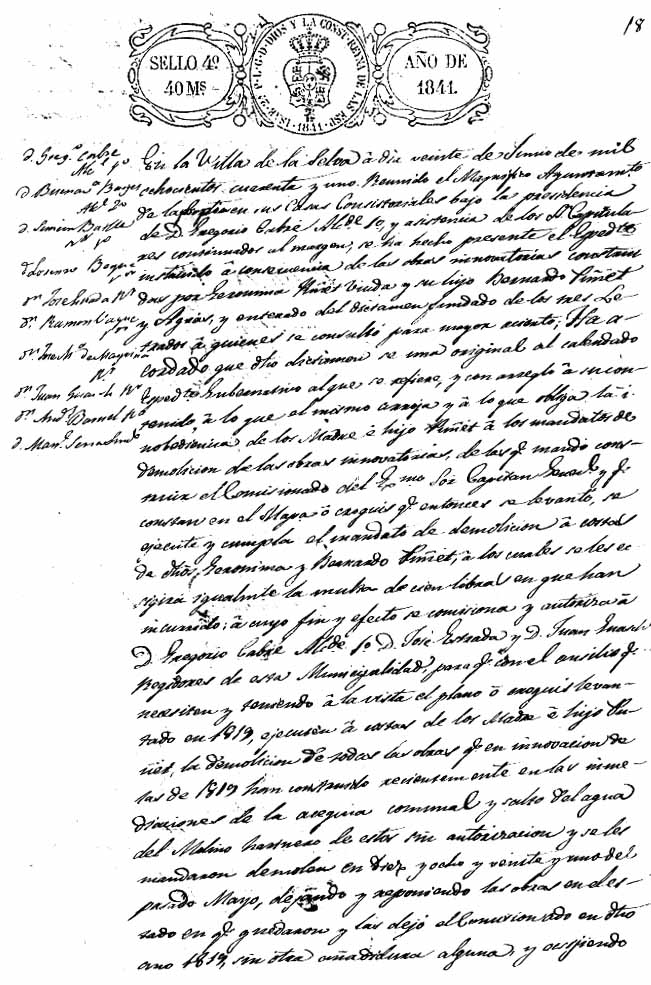 18
SELLO 4º
40 Mˢ
ISAB. 2ª P. L. G. D. DIOS Y LA CONST. REYNA DE LAS ESP. 1841.
AÑO DE
1841.
d. Greg.º Cabré
Al.e 1º
d. Buenav.a
Al.e 2º
d. Simon
d.n Jose Estrada R.or
d.n Ramon
d.n Jose M.a de
d.n Juan
d.n And.
d. Man.l Serra Sind.º
En la Villa de la Selva à dia veinte de Junio de mil
ochocientos cuarenta y uno. Reunido el Magnifico Ayuntam.to
de la propia en sus Casas Consistoriales bajo la presidencia
de D. Gregorio Cabré Al.de 1º, y asistencia de los S.res Capitula-
res continuados al margen, se ha hecho presente el Exped.te
instituido à consecuencia de las obras innovatorias construi-
das por Geronima Viuda y su hijo Bernardo Viñet
y Aguas, y enterado del dictamen fundado de los tres Le-
trados à quienes se consultó para mayor acierto; Ha a-
cordado que dho dictamen se una original al calendado
Exped.te Gubernativo al que se refiere, y con arreglo à su con-
tenido, à lo que el mismo arroja y à lo que obliga la i-
nobediencia de los Madre è hijo Viñet à los mandatos de
demolicion de las obras innovatorias, de las q.e mandó cons-
truir el Comisionado del Ex.mo Sór Capitan General y q.e
constan en el Mapa ò croquis q.e entonces se levantó, se
ejecute y cumpla el mandato de demolicion à costas
de dhos, Geronima y Bernardo Viñet, à los cuales se les ec-
sigirá igualmente la multa de cien libras en que han
incurrido; à cuyo fin y efecto se comisiona y autoriza à
D. Gregorio Cabré Al.de 1º D. José Estrada y D. Juan
Regidores de esta Municipalidad, para q.e con el ausilio q.e
necesiten y teniendo à la vista el plano ò croquis levan-
tado en 1819, ejecuten à costas de los Madre è hijo Vi-
ñet, la demolicion de todas las obras q.e en innovacion de
las de 1819 han construido recientemente en las inme-
diaciones de la acequia comunal y salto del agua
del Molino harinero de estos sin autorizacion y se les
mandaron demoler en diez y ocho y veinte y uno del
pasado Mayo, dejando y reponiendo las obras en el es-
tado en q.e quedaron y las dejó el Comisionado en dho
ano 1819, sin otra añadidura alguna, y ecsijiendo